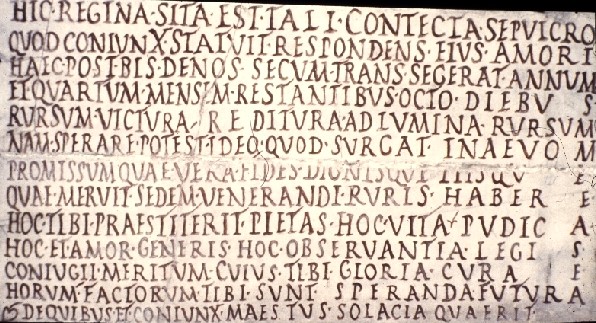 HIC·REGINA·SITA·EST·TALI·CONTECTA·SEPVLCRO
QVOD CONIVNX·STATVIT·RESPONDENS·EIVS·AMORI
HAEC·POST BIS·DENOS·SECVM·TRANSSEGERAT·ANNVM
ET·QVARTVM·MENSIM·RESTANTIBVS·OCTO·DIEBVS
RVRSVM·VICTVRA·REDITVRA·AD LVMINA·RVRSVM
NAM·SPERARE·POTEST·IDEO·QVOD·SVRGAT·IN AEVOM
PROMISSVM QVAE VERA·FIDES·DIONISQVE
QVAE·MERVIT·SEDEM·VENERANDI·RVRIS·HABERE
HOC·TIBI·PRAESTITERIT·PIETAS·HOC·VITA·PVDICA
HOC·ET·AMOR·GENERIS·HOC·OBSERVANTIA·LEGIS
CONIVGII·MERITVM·CVIVS·TIBI·GLORIA·CVRAE
HORVM·FACTORVM·TIBI·SVNT·SPERANDA·FVTVRA
DE QVIBVS·ET·CONIVNX·MAESTVS·SOLACIA·QVAERIT